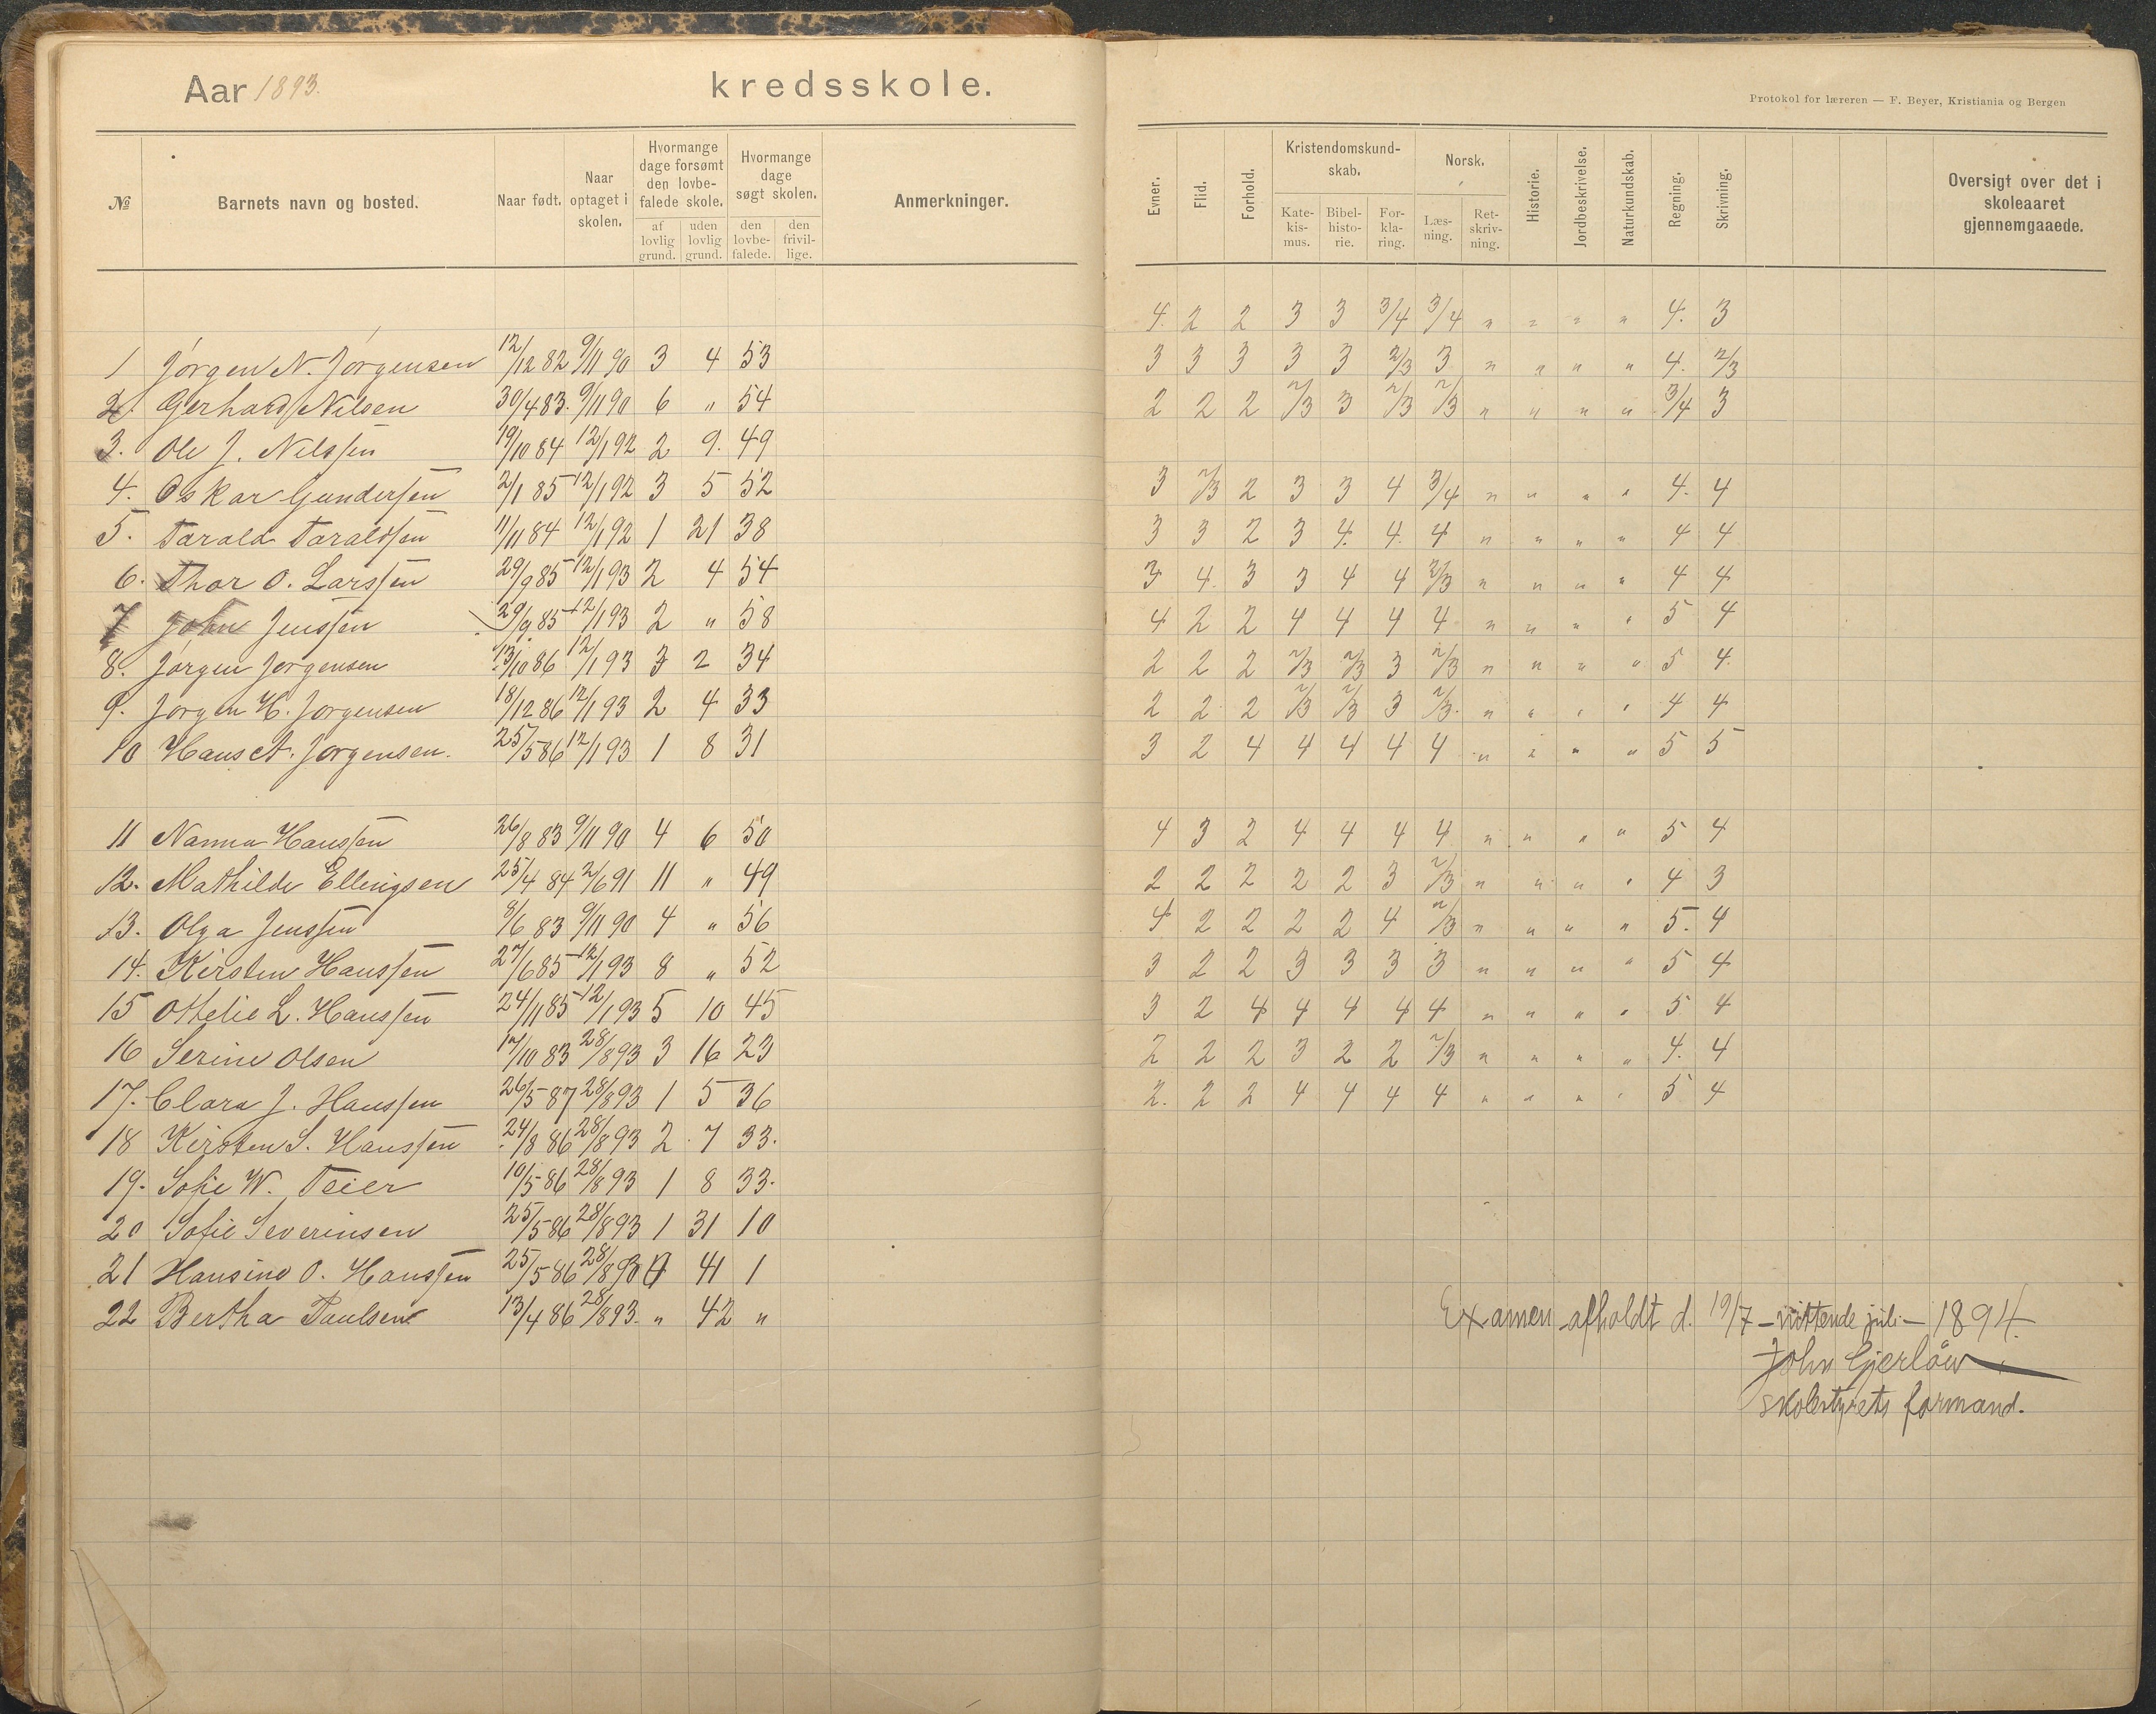 Aar 1893. kredsskole.
Protokol for læreren — F. Beyer, Kristiania og Bergen
№ Barnets navn og bosted. Naar født. Naar optaget i skolen. Hvormange dage forsømt den lovbefalede skole. af lovlig grund. uden lovlig grund. Hvormange dage søgt skolen. den lovbefalede. den frivillige. Anmerkninger.
Evner. Flid. Forhold. Kristendomskundskab. Katekismus. Bibelhistorie. Forklaring. Norsk. Læsning. Retskrivning. Historie. Jordbeskrivelse. Naturkundskab. Regning. Skrivning. Oversigt over det i skoleaaret gjennemgaaede.
1 Jørgen N. Jørgensen 12/12 82 9/11 90 3 4 53
2. Gerhard Nilsen 30/4 83. 9/11 90 6 " 54
3. Ole J. Nilssen 19/10 84 12/1 92 2 9. 49
4. Oskar Gunderssen 2/1 85 12/1 92 3 5 52
5. Tarald Taraldssen 11/11 84 12/1 92 1 21 38
6. Thor O. Larssen 29/9 85 12/1 93 2 4 54
7 John Jenssen 29/9 85 12/1 93 2 " 58
8. Jørgen Jørgensen 13/10 86 12/1 93 3 2 34
9. Jørgen H. Jørgensen 18/12 86 12/1 93 2 4 33
10 Hans A. Jorgensen. 25/5 86 12/1 93 1 8 31
11 Nanna Hanssen 26/8 83 9/11 90 4 6 50
12. Mathilde Ellingsen 25/4 84 2/6 91 11 " 49
13. Olga Jenssen 8/6 83 9/11 90 4 " 56
14. Kirsten Hanssen 27/6 85 12/1 93 8 " 52
15 Ottelie L. Hanssen 24/11 85 12/1 93 5 10 45
16 Serine Olsen 17/10 83 28/8 93 3 16 23
17. Clara J. Hanssen 26/5 87 28/8 93 1 5 36
18 Kirsten S. Hanssen 24/8 86 28/8 93 2 7 33.
19. Sofie W. Teier 10/5 86 28/8 93 1 8 33.
20 Sofie Severinsen 25/5 86 28/8 93 1 31 10
21 Hansine O. Hanssen 25/5 86 28/8 93 0 41 1
22 Bertha Paulsen 13/4 86 28/8 93. " 42 "
4. 2 2 3 3 3/4 3/4 " " " " 4. 3
3 3 3 3 3 2/3 3 " " " " 4. 2/3
2 2 2 2/3 3 2/3 2/3 " " " " 3/4 3
3 2/3 2 3 3 4 3/4 " " " " 4. 4
3 3 2 3 4. 4. 4 " " " " 4 4
3 4. 3 3 4 4 2/3 " " " " 4 4
4 2 2 4 4 4 4 " " " " 5 4
2 2 2 2/3 2/3 3 2/3 " " " " 5 4.
2 2 2 2/3 2/3 3 2/3. " " " " 4 4
3 2 4 4 4 4 4 " " " " 5 5
4 3 2 4 4 4 4 " " " " 5 4
2 2 2 2 2 3 2/3 " " " " 4 3
4 2 2 2 2 4 2/3 " " " " 5. 4
3 2 2 3 3 3 3 " " " " 5 4
3 2 4 4 4 4 4 " " " " 5 4
2 2 2 3 2 2 2/3 " " " " 4. 4
2. 2 2 4 4 4 4 " " " " 5 4
Examen afholdt d. 19/7 – nittende juli – 1894.
John Gjerløw
skolestyrets formand.